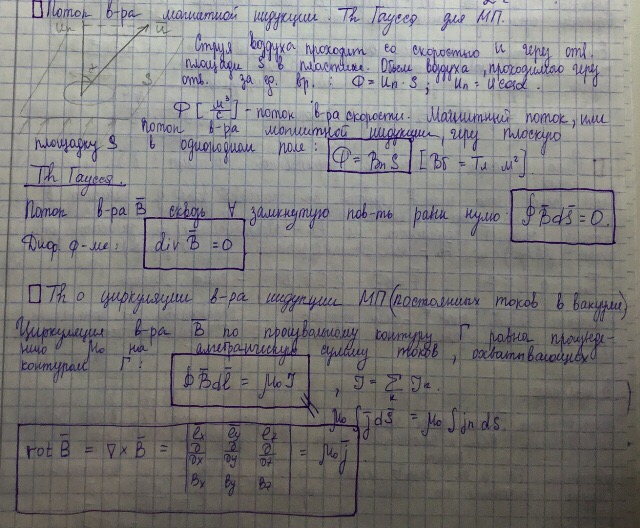 □ Поток в-ра магнитной индукции. Th Гаусса для МП.
Un U
Струя воздуха проходит со скоростью U через отв.
площади S в пластине. Объем воздуха, проходимого через
отв. за ед. вр.: Φ = Un · S; Un = U cosα
α S
Φ [м³/с] - поток в-ра скорости. Магнитный поток, или
поток в-ра магнитной индукции, через плоскую
площадку S в однородном поле: Φ = BnS [Вб = Тл · м²]
Th Гаусса.
Поток в-ра B̅ сквозь ∀ замкнутую пов-ть равен нулю: ∮ B̅dS̅ = 0.
Диф. ф-ме: div B̅ = 0
□ Th о циркуляции в-ра индукции МП (постоянных токов в вакууме)
Циркуляция в-ра B̅ по произвольному контуру Γ равна произведе-
нию μ₀ на алгебраическую сумму токов, охватывающих
контуром Γ: ∮ B̅dl̅ = μ₀ I, I = Σₖ Iₖ.
μ₀ ∫ j̅ dS̅ = μ₀ ∫ jn dS.
rot B̅ = ∇ × B̅ = | e̅x e̅y e̅z | = μ₀ j̅
∂/∂x ∂/∂y ∂/∂z
Bx By Bz